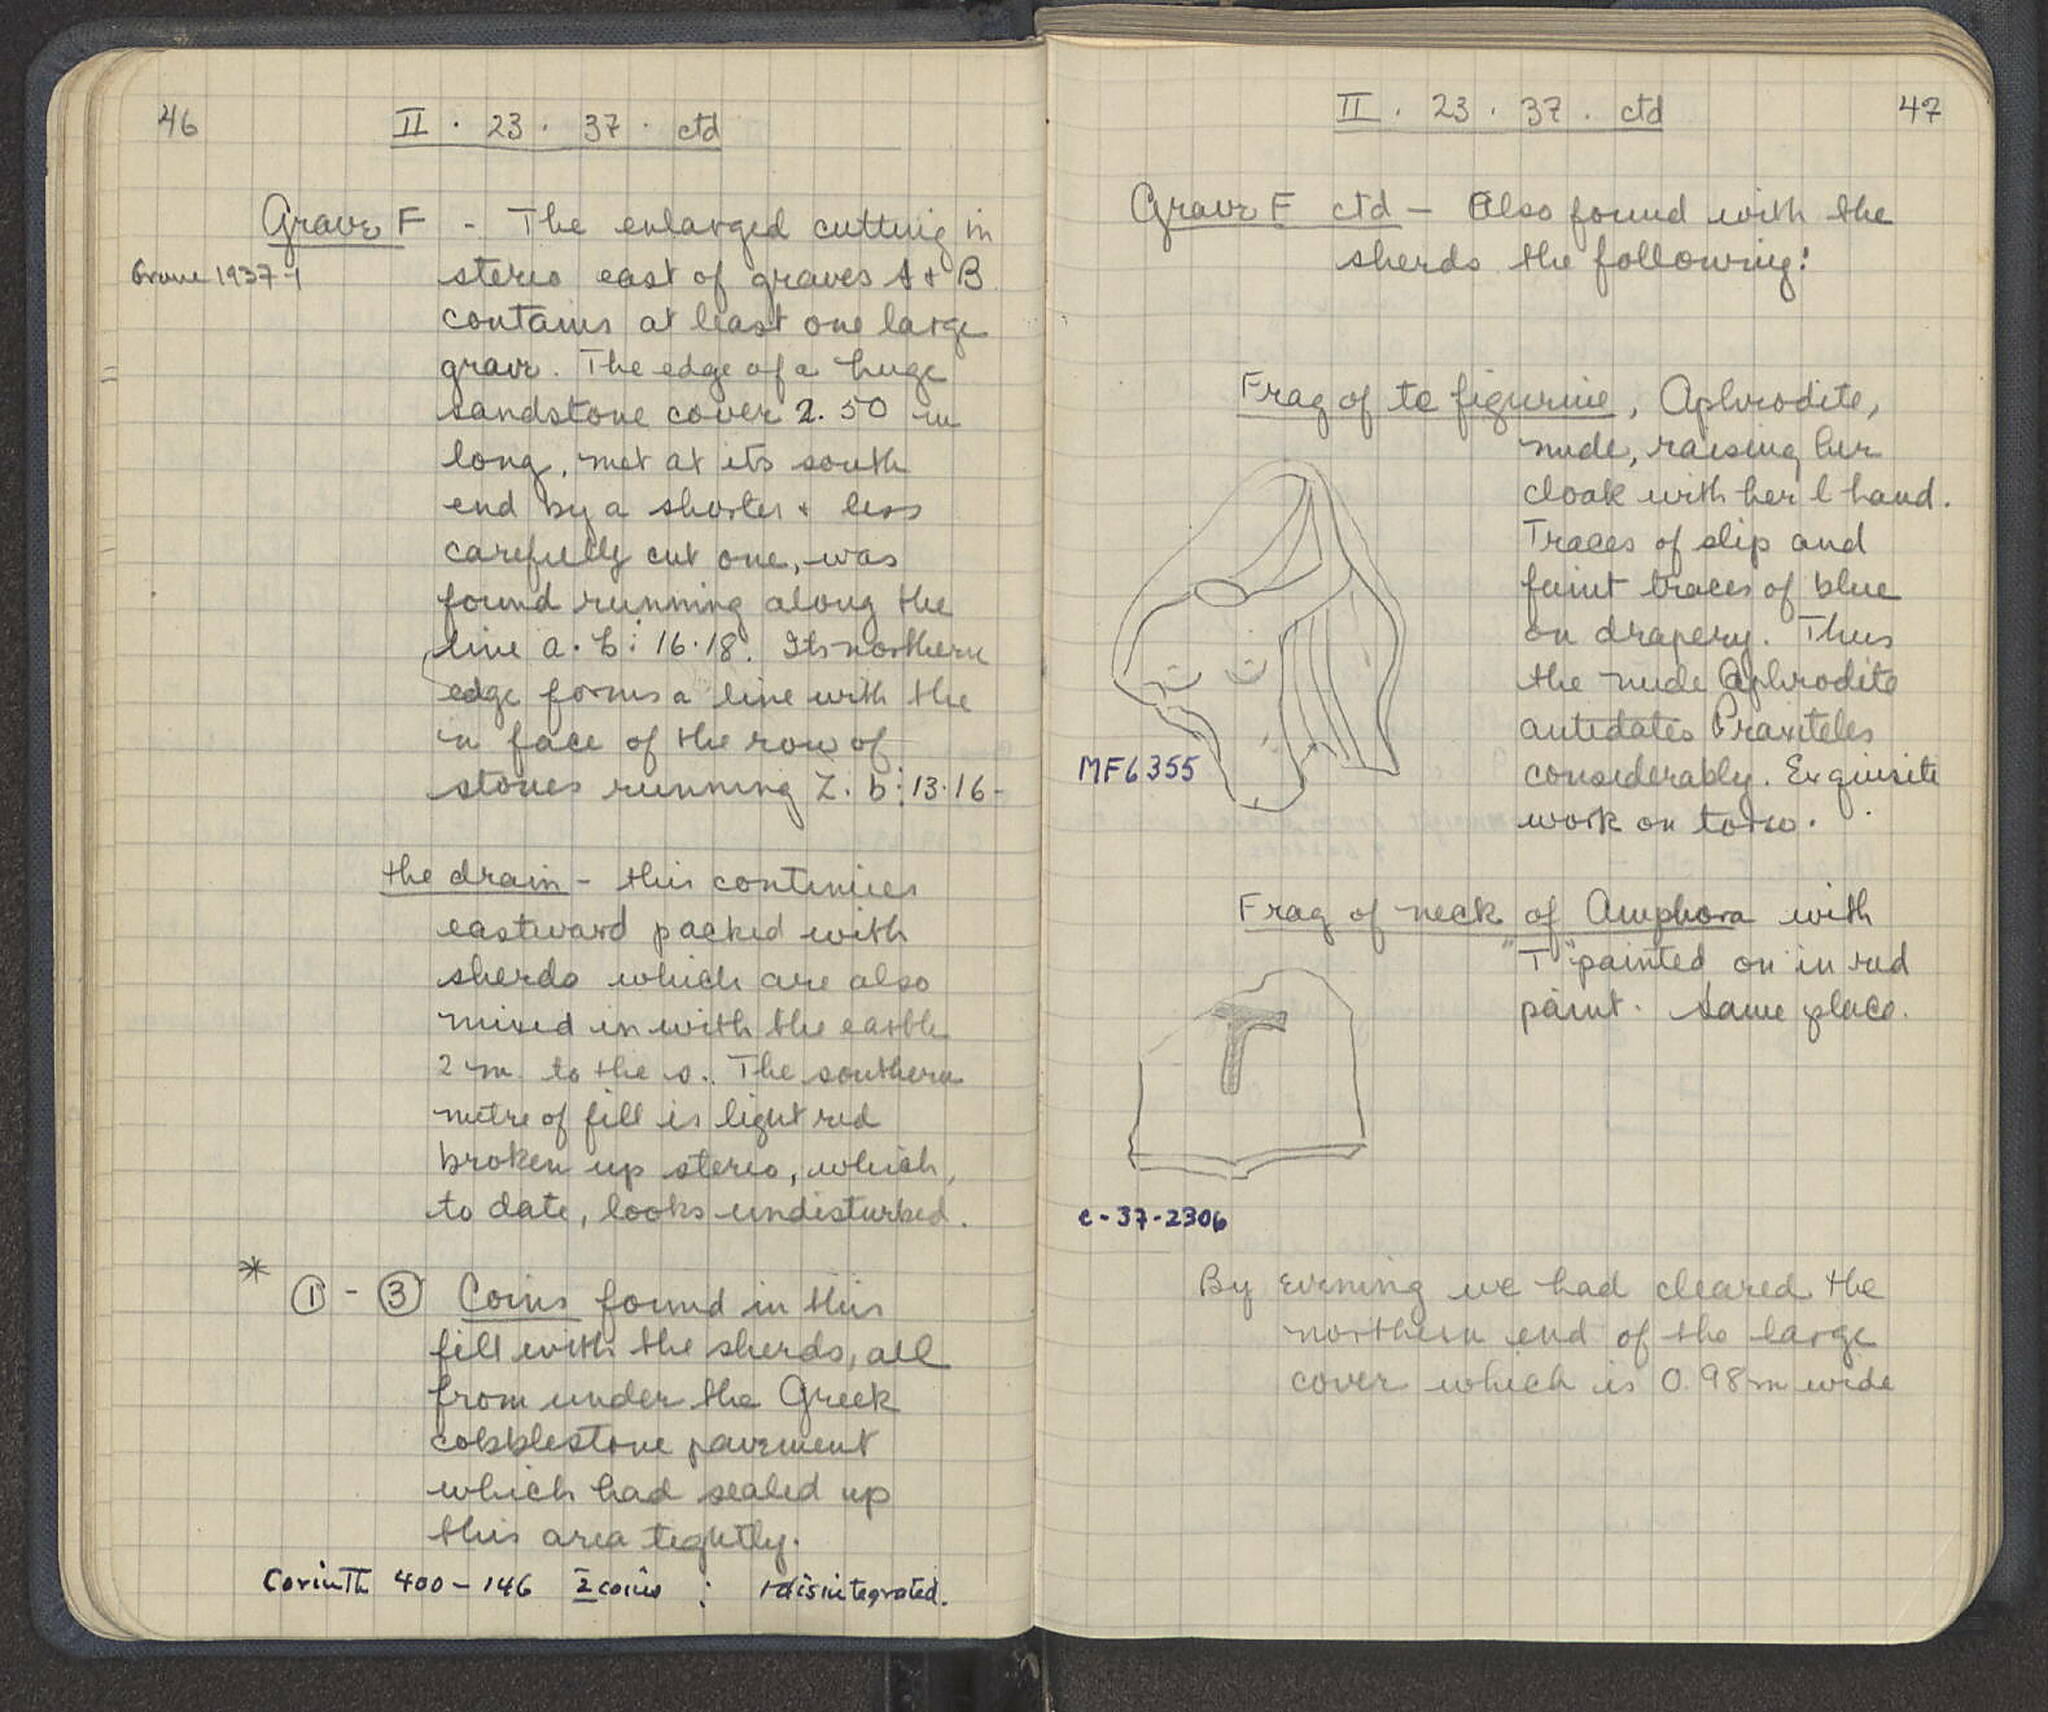 46
II . 23 . 37 . ctd
Grave F - The enlarged cutting in
Grave 1937-1
stereo east of graves A + B
contains at least one large
grave. The edge of a huge
sandstone cover 2.50 m
long, met at its south
end by a shorter + less
carefully cut one, was
found running along the
line a.b: 16.18. Its northern
edge forms a line with the
in face of the row of
stones running Z.b: 13.16 -
the drain - this continues
eastward packed with
sherds which are also
mixed in with the earth
2 m to the s. The southern
metre of fill is light red
broken up stereo, which,
to date, looks undisturbed.
* ① - ③ Coins found in this
fill with the sherds, all
from under the Greek
cobblestone pavement
which had sealed up
this area tightly.
Corinth 400 - 146 2 coins : 1 disintegrated.
II . 23 . 37 . ctd
47
Grave F ctd - Also found with the
sherds the following:
Frag of tc figurine, Aphrodite,
nude, raising her
cloak with her l hand.
Traces of slip and
faint traces of blue
on drapery. Thus
the nude Aphrodite
antedates Praxiteles
MF6355
considerably. Exquisite
work on torso.
Frag of neck of Amphora with
"T" painted on in red
paint. Same place.
C-37-2306
By evening we had cleared the
northern end of the large
cover which is 0.98m wide